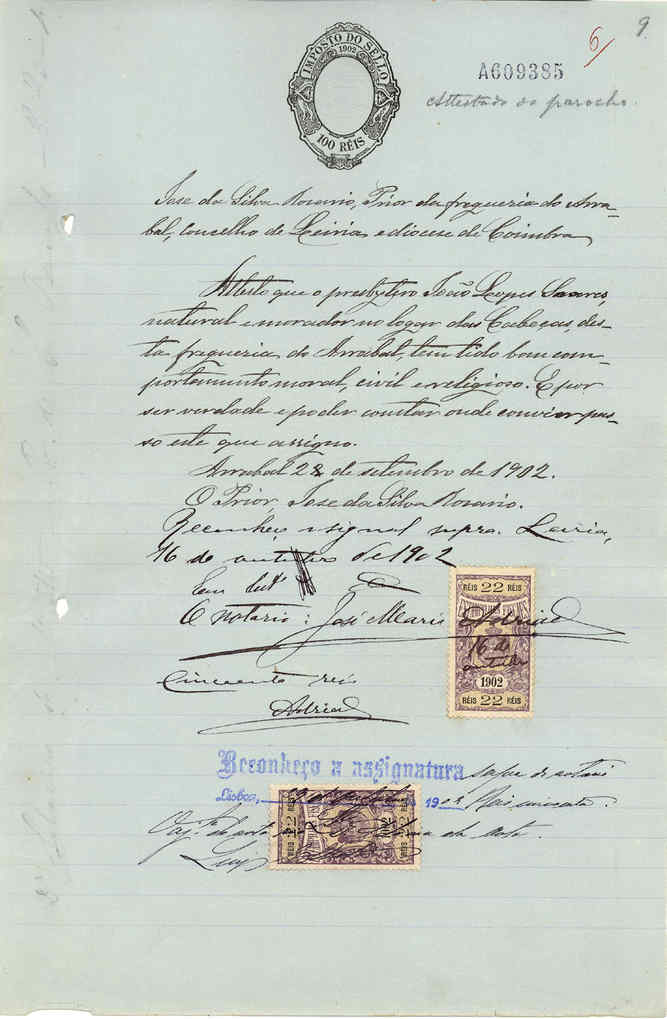 9.
6
IMPOSTO DO SELLO
1902
100 RÉIS
A609385
Attestado do parocho.
Jose da Silva Rosario, Prior da freguezia do Arra-
bal, concelho de Leiria e diocese de Coimbra
Attesto que o presbytero João Lopes Soares
natural e morador no logar das Cabeças, des-
ta freguezia do Arrabal, tem tido bom com-
portamento moral, civil e religioso. E por
ser verdade e poder constar onde convier pas-
so este que assigno.
Arrabal 28 de setembro de 1902.
O Prior, Jose da Silva Rosario.
Reconheço o signal supra. Leiria,
16 de outubro de 1902
Em
O notario: José Maria Adriad
RÉIS 22 RÉIS
16 de
outubro
1902
RÉIS 22 RÉIS
Cincoenta reis
Adriad
Reconheço a assignatura supra do notario
Lisboa, 190
RÉIS 22 RÉIS
1902
RÉIS 22 RÉIS
Luiz